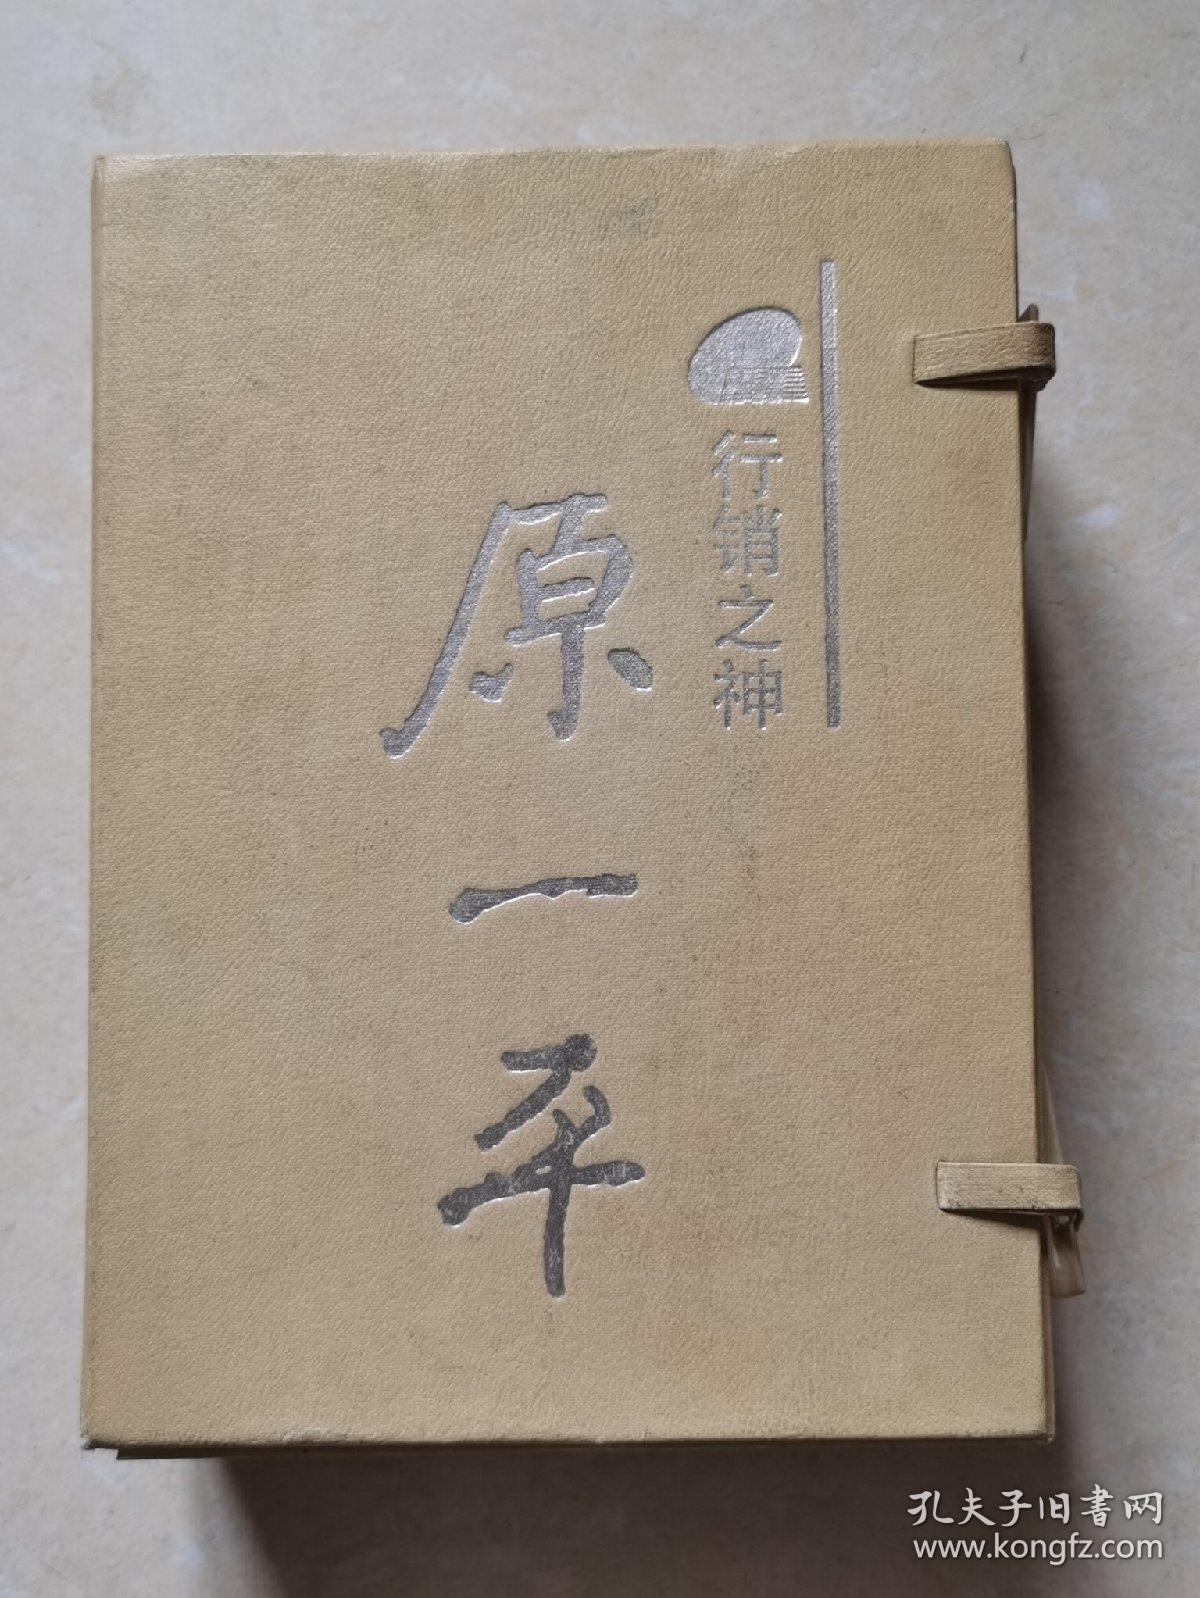 行销之神
原一平
孔夫子旧書网
www.kongfz.com